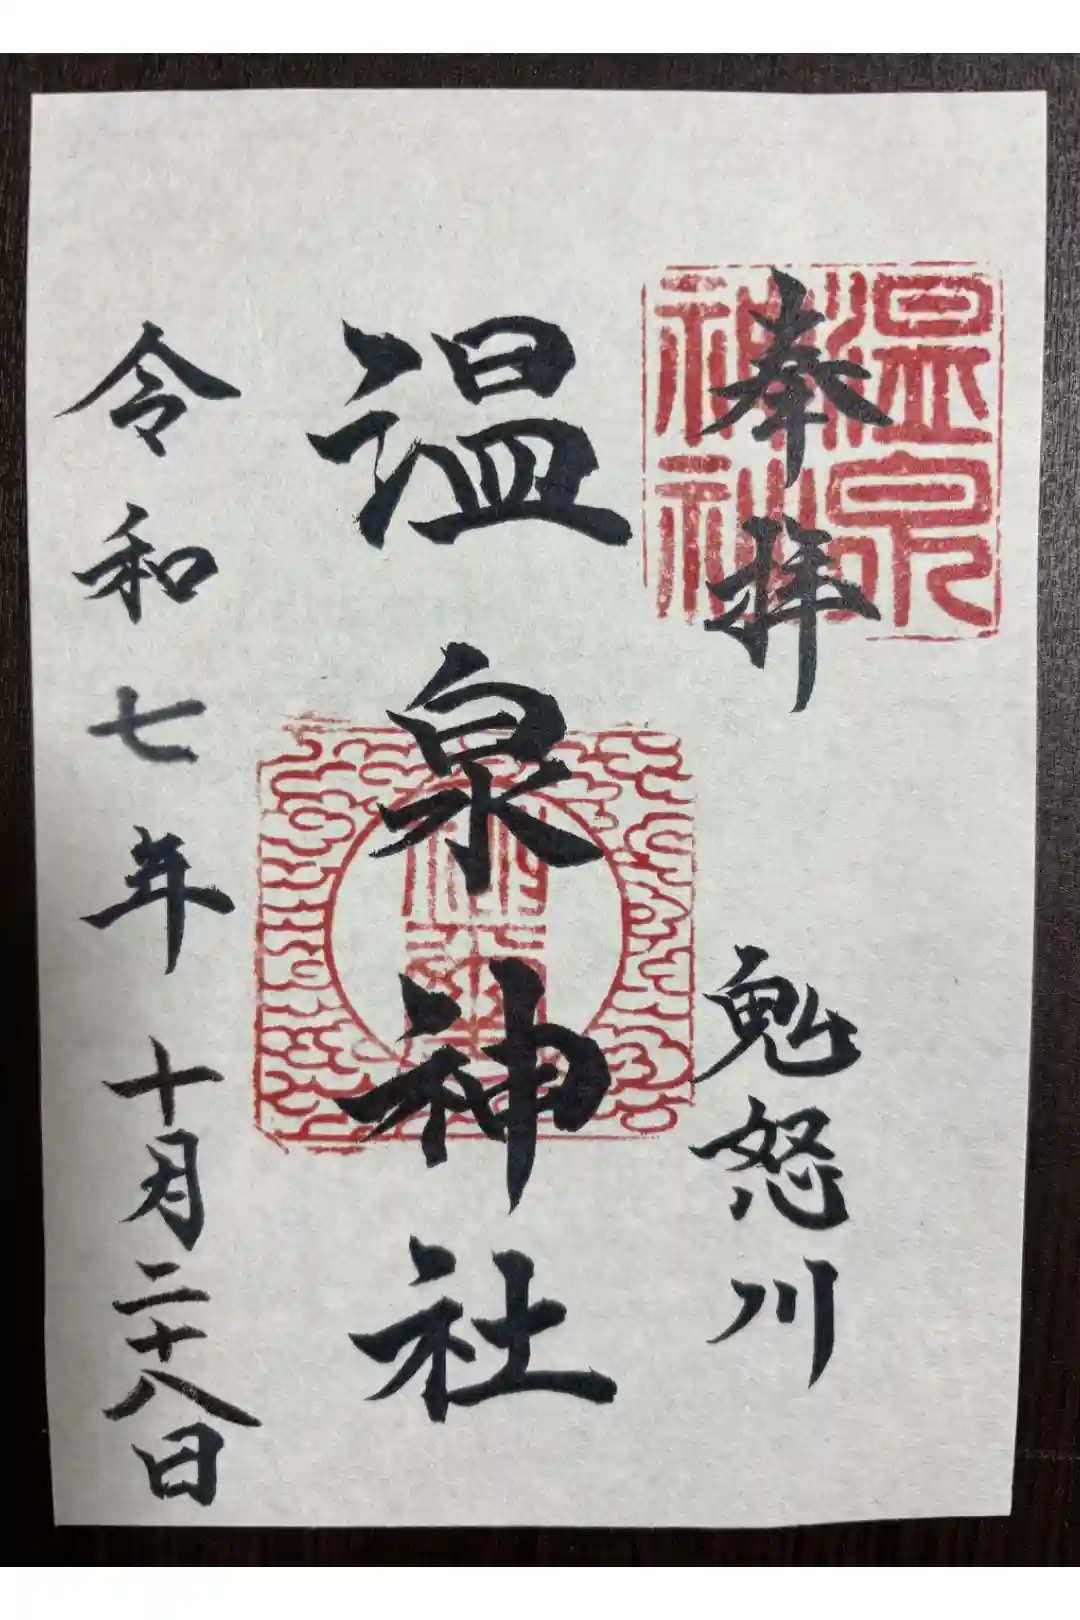 奉拝
鬼怒川
温泉神社
令和七年十月二十八日
温泉
神社